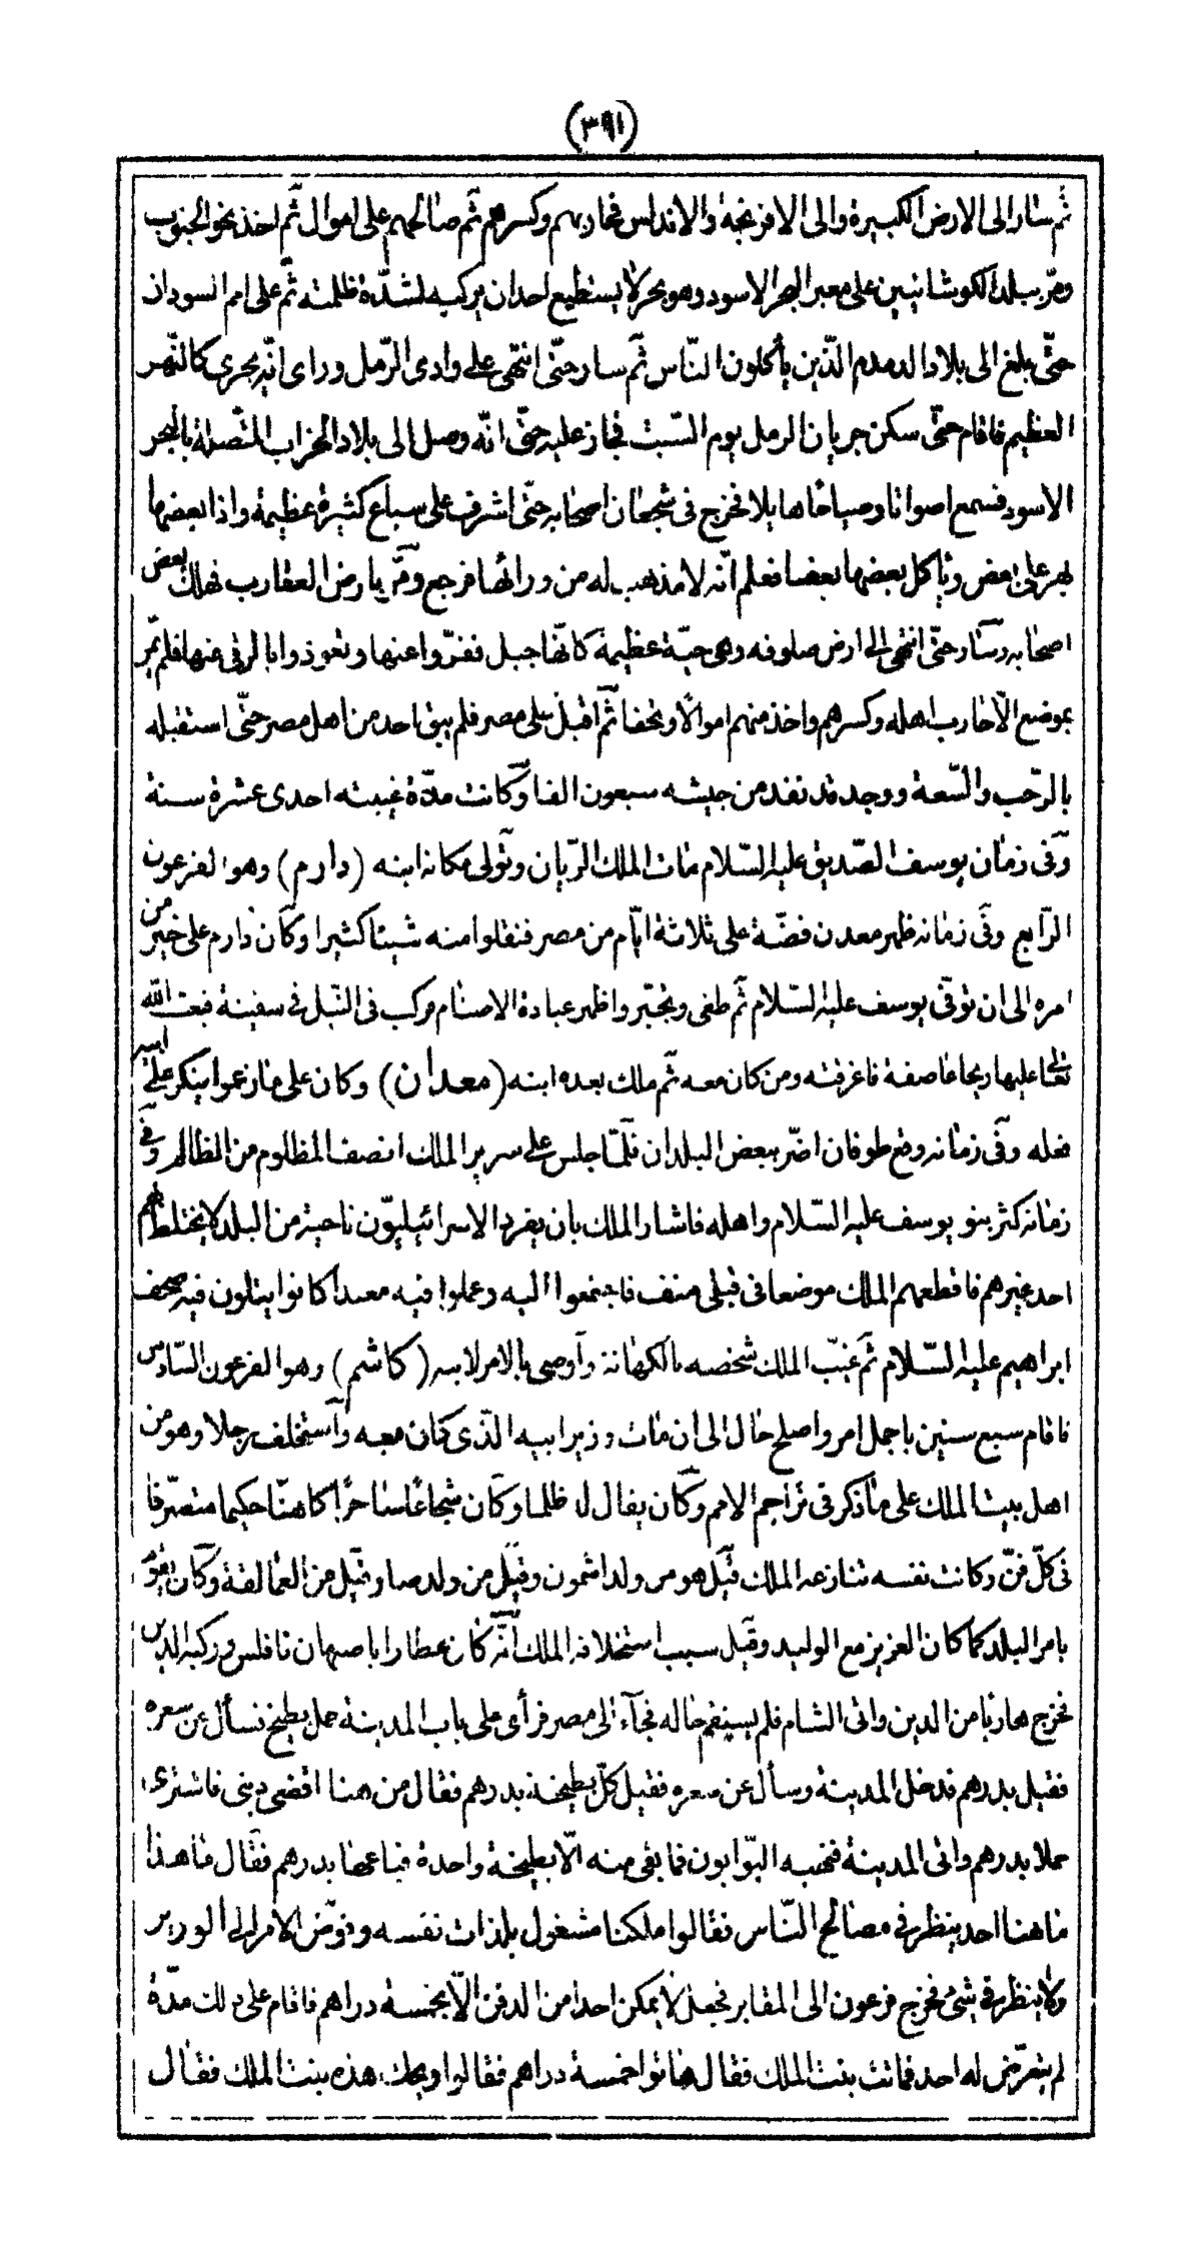 (٣٩١)
ثم سار الى الارض الكبيرة والى الافرنجة والاندلس فحاربهم وكسرهم ثم صالحهم على اموال ثم اخذ نحو الجنوب
ومر ببلد الكوشانيين على معبر البحر الاسود وهو بحر لا يستطيع احدان يركبه لشدة ظلمته ثم على امم السودان
حتى بلغ الى بلاد الدمدم الذين يأكلون الناس ثم سار حتى انتهى على وادى الرمل ورأى انه يجرى كالنهر
العظيم فاقام حتى سكن جريان الرمل يوم السبت فجاز عليه حتى انه وصل الى بلاد الخراب المتصلة بالبحر
الاسود فسمع اصواتا وصياحا هايلا فخرج فى شجعان اصحابه حتى اشرف على سباع كثيرة عظيمة واذا بعضها
يهر على بعض ويأكل بعضها بعضا فعلم انه لا مذهب له من ورائها فرجع ومر بارض العقارب فهلك بعض
اصحابه وسار حتى انتهى الى ارض صلوفه وهى حية عظيمة كانها جبل ففروا عنها وتعوذوا بالرقى عنها فلم يمر
بموضع الا حارب اهله وكسرهم واخذ منهم اموالا وتحفا ثم اقبل على مصر فلم يبق احد من اهل مصر حتى استقبله
بالرحب والسعة ووجد قد نفد من جيشه سبعون الفا وكانت مدة غيبته احدى عشرة سنة
وفى زمان يوسف الصديق عليه السلام مات الملك الريان وتولى مكانه ابنه (دارم) وهو الفرعون
الرابع وفى زمانه ظهر معدن فضة على ثلاثة ايام من مصر فنقلوا منه شيئا كثيرا وكان دارم على خير من
امره الى ان توفى يوسف عليه السلام ثم طغى وتجبر واظهر عبادة الاصنام فركب فى النيل فى سفينة فبعث الله
تعالى عليها ريحا عاصفة فاغرقته ومن كان معه ثم ملك بعده ابنه (معدان) وكان على ما زعموا ينكر على ابيه
فعله وفى زمانه وقع طوفان اضر ببعض البلدان فلما جلس على سرير الملك انصف المظلوم من الظالم وفى
زمانه كثر بنو يوسف عليه السلام واهله فاشار الملك بان يفرد الاسرائيليون ناحية من البلد لا يختلط بهم
احد غيرهم فاقطعهم الملك موضعا فى قبلى منف فاجتمعوا اليه وعملوا فيه معبدا كانوا يتلون فيه صحف
ابراهيم عليه السلام ثم غيب الملك شخصه بالكهانة وأوصى بالامر لابنه (كاشم) وهو الفرعون السادس
فاقام سبع سنين باجمل امر واصلح حال الى ان مات وزير ابيه الذى كان معه واستخلف رجلا وهو من
اهل بيت الملك على ما ذكر فى تراجم الامم وكان يقال له ظلما وكان شجاعا ساحرا كاهنا حكيما متصرفا
فى كل فن وكانت نفسه تنازعه الملك قيل هو من ولد اشمون وقيل من ولد صا وقيل من العمالقة وكان يقوم
بامر البلد كما كان العزيز مع الوليد وقيل سبب استخلافه الملك انه كان عطارا باصبهان فافلس وركبه الدين
فخرج هاربا من الدين واتى الشام فلم يستقم حاله فجآء الى مصر فرأى على باب المدينة حمل بطيخ فسأل عن سعره
فقيل بدرهم فدخل المدينة وسأل عن سعره فقيل كل بطيخة بدرهم فقال من هنا اقضى دينى فاشترى
حملا بدرهم واتى المدينة فنهبه البوابون فما بقى منه الا بطيخة واحدة فباعها بدرهم فقال ما هذا
ما هنا احد ينظر فى مصالح الناس فقالوا ملكنا مشغول بلذات نفسه وفوض الامر الى الوزير
ولا ينظر فى شئ فخرج فرعون الى المقابر فجعل لا يمكن احدا من الدفن الا بخمسة دراهم فاقام على ذلك مدة
لم يتعرض له احد فماتت بنت الملك فقال هاتوا خمسة دراهم فقالوا ويحك هذه بنت الملك فقال